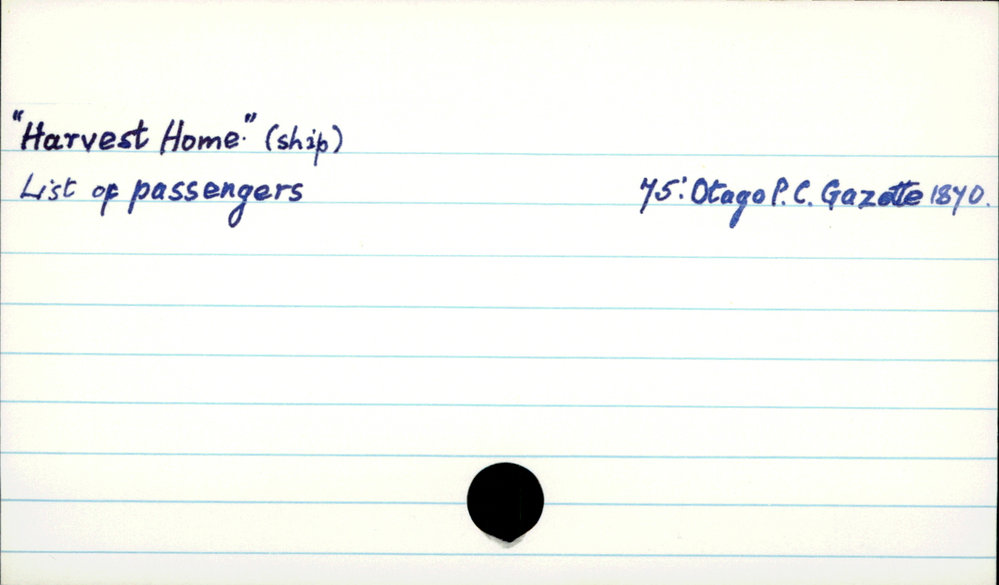 "Harvest Home." (ship)
List of passengers 75: Otago P. C. Gazette 1870.